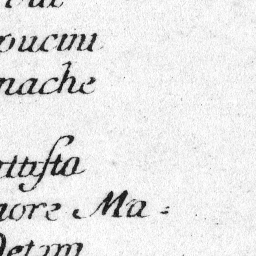 oucini
nache
ttista
iore Ma=
Detam